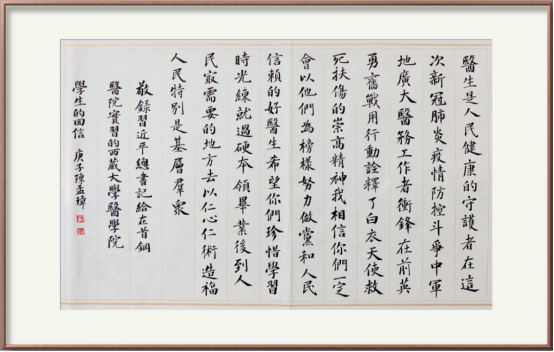 醫生是人民健康的守護者在這
次新冠肺炎疫情防控斗爭中軍
地廣大醫務工作者衝鋒在前英
勇奮戰用行動詮釋了白衣天使救
死扶傷的崇高精神我相信你們一定
會以他們為榜樣努力做黨和人民
信賴的好醫生希望你們珍惜學習
時光練就過硬本領畢業後到人
民冣需要的地方去以仁心仁術造福
人民特別是基層羣衆
敬録習近平總書記給在首鋼
醫院實習的西藏大學醫學院
學生的回信 庚子陳孟璋